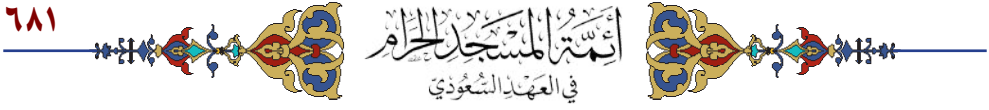 ٦٨١
أَئِمَّةُ المَسْجِدِ الحَرَامِ
في العَهْدِ السُّعُودِيِّ